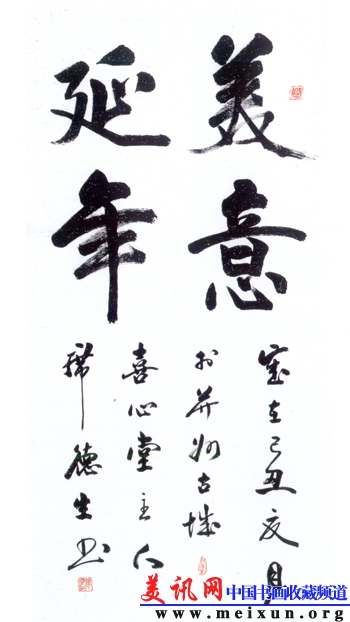 美意
延年
歲在己丑夏月
於并州古城
喜心堂主人
德生书
美讯网 中国书画收藏频道
www.meixun.org